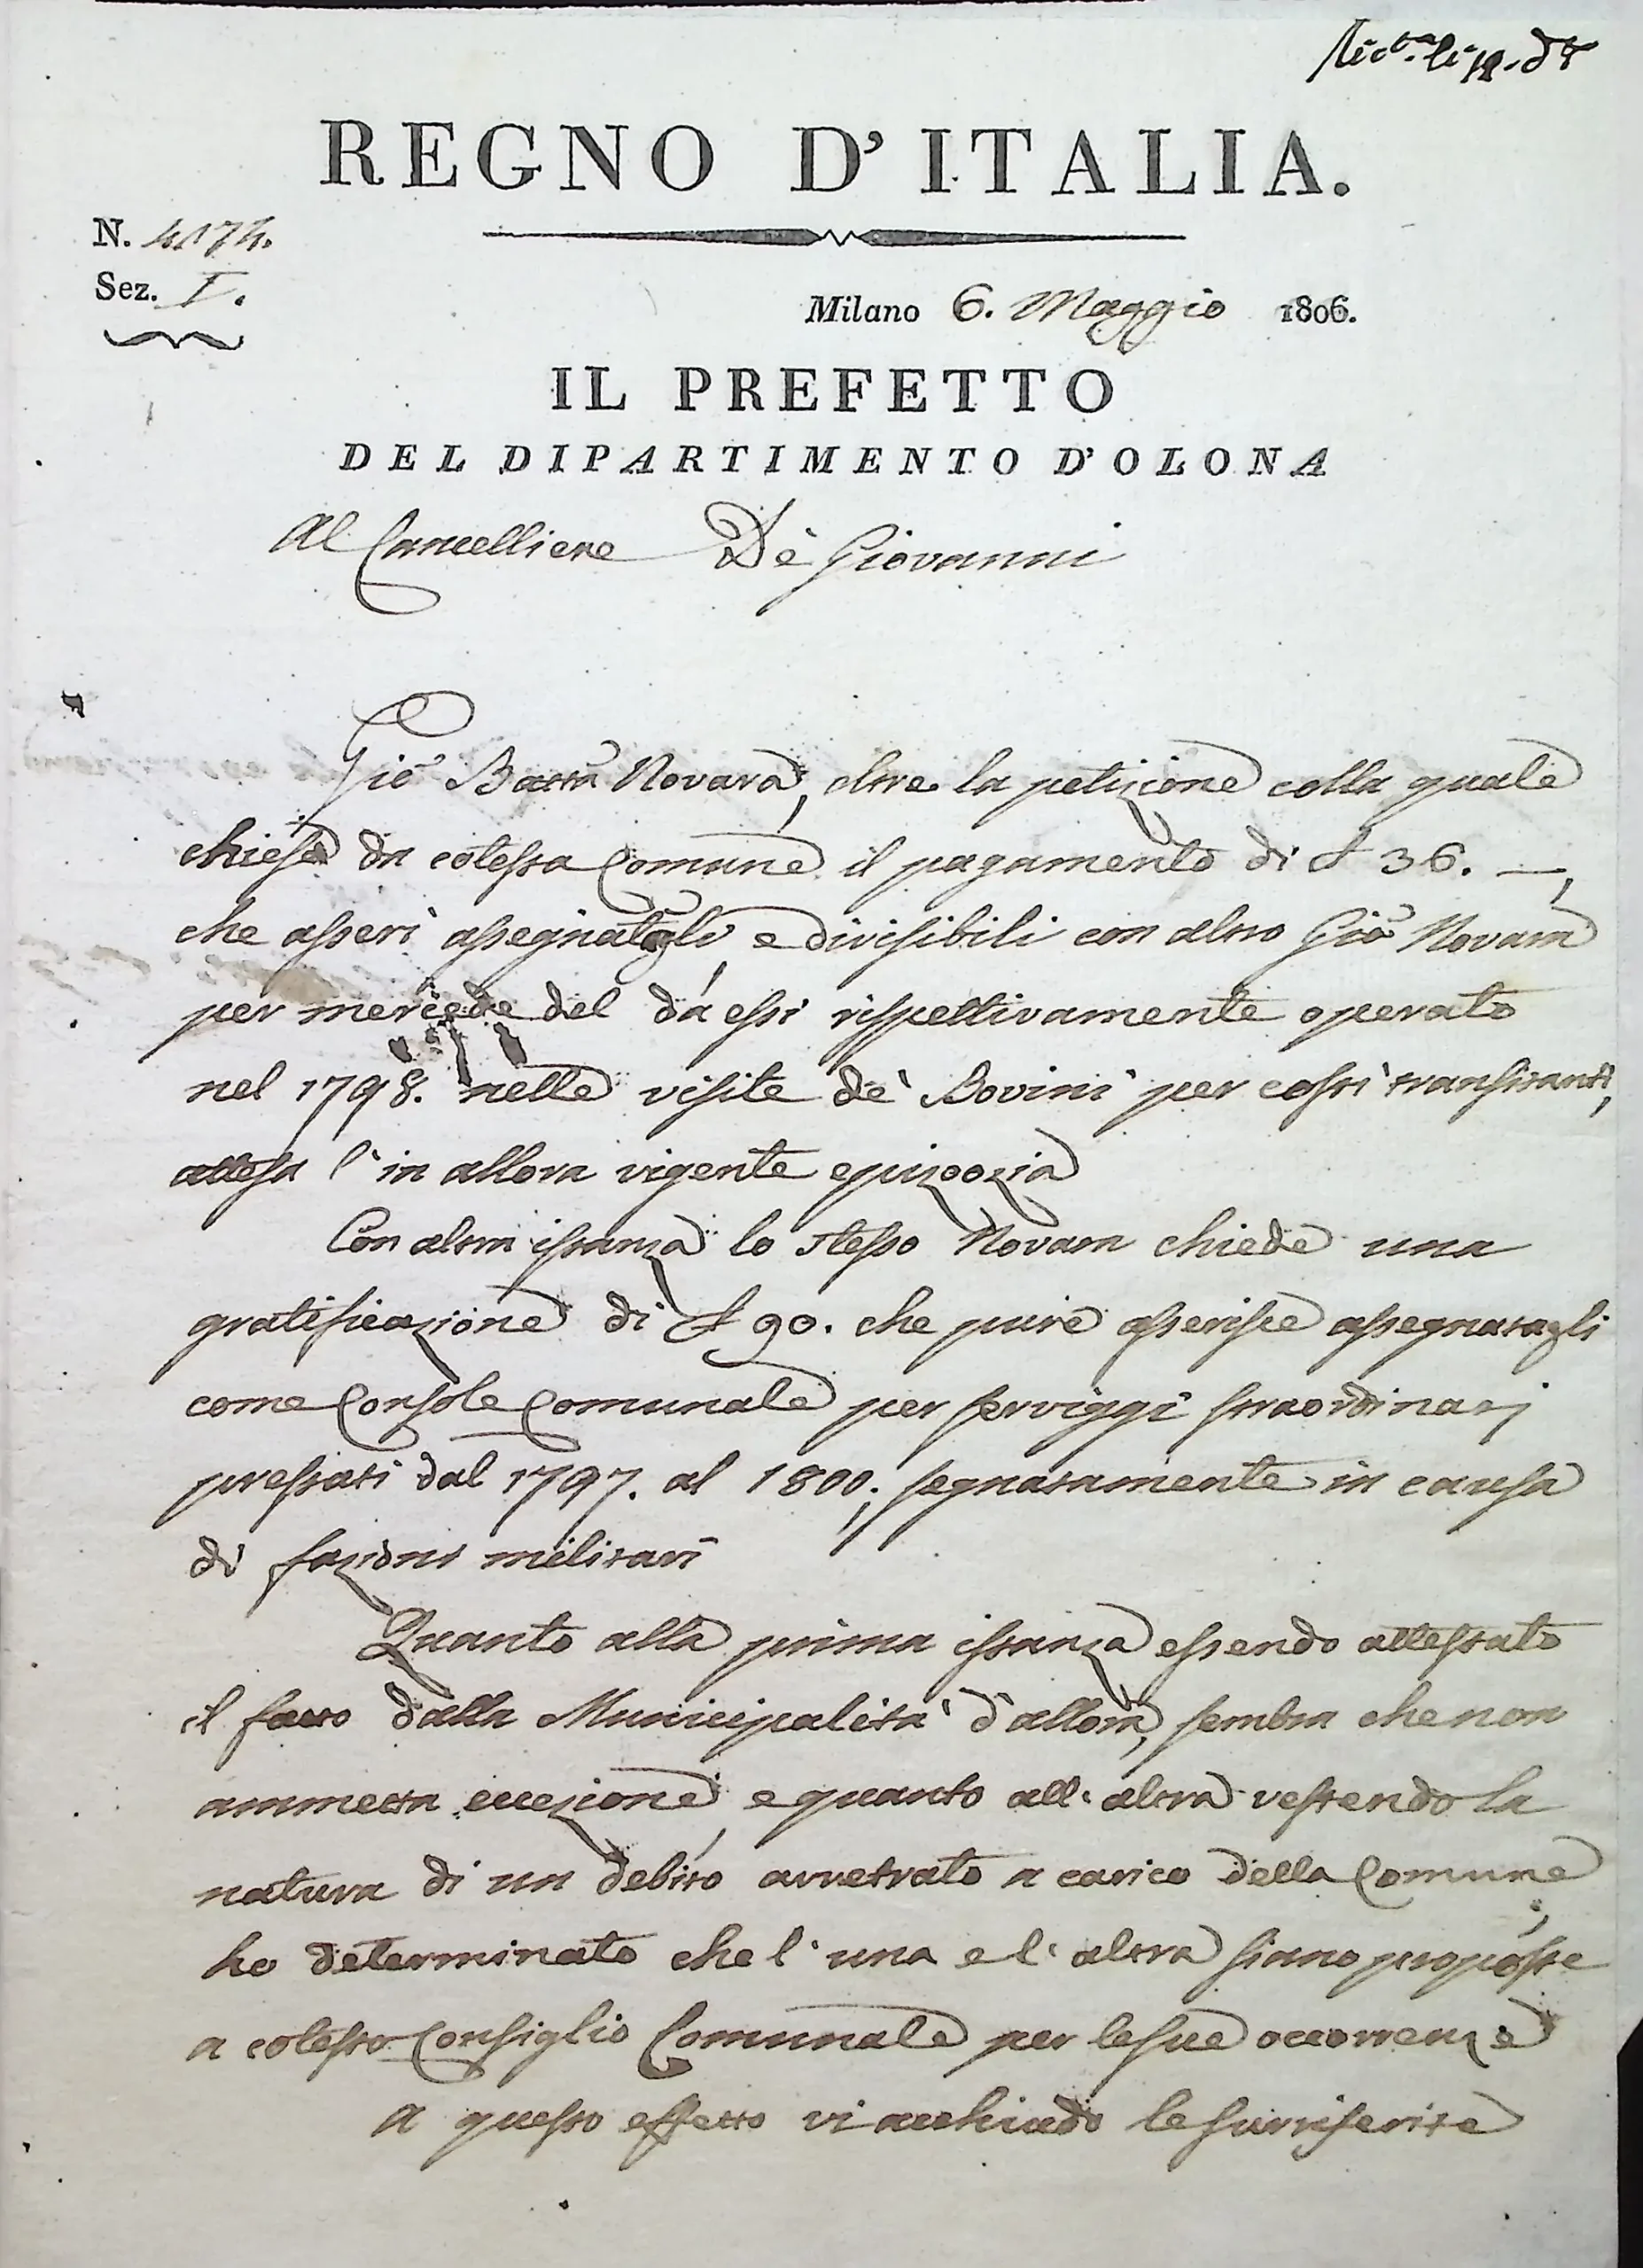 Ric.ta li 18. d.o
REGNO D'ITALIA.
N. 4174.
Sez. I.
Milano 6. Maggio 1806.
IL PREFETTO
DEL DIPARTIMENTO D'OLONA
Al Cancelliere De Giovanni
Gio Batta Novara, oltre la petizione colla quale
chiese da cotesta Comune il pagamento di £ 36. —,
che asserì assegnategli, e divisibili con altro Gio Novara
per mercede del da essi rispettivamente operato
nel 1798. nelle visite de' Bovini per costì transitanti,
attesa l'in allora vigente epizoozia
Con altra istanza lo stesso Novara chiede una
gratificazione di £ 90. che pure asserisce assegnatagli
come Console Comunale per serviggi straordinarj
prestati dal 1797. al 1800; segnatamente in causa
di fazioni militari
Quanto alla prima istanza essendo attestato
il fatto dalla Municipalità d'allora, sembra che non
ammetta eccezione, e quanto all'altra vestendo la
natura di un debito arretrato a carico della Comune,
ho determinato che l'una e l'altra siano proposte
a cotesto Consiglio Comunale per le sue occorrenze
A questo effetto vi acchiudo le surriferite